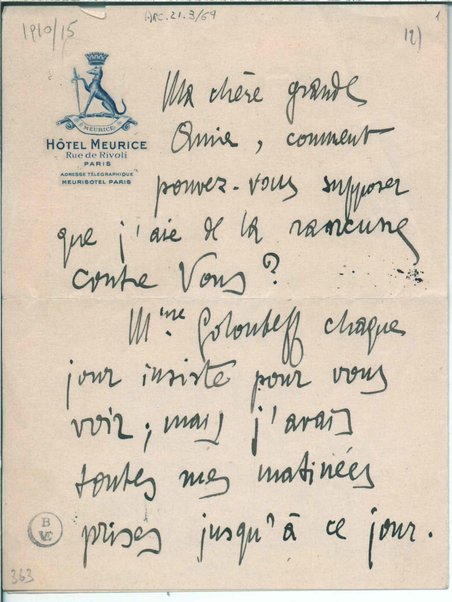 1910/15
ARC. 21. 3/69
1
12)
MEURICE
HÔTEL MEURICE
Rue de Rivoli
PARIS
ADRESSE TÉLÉGRAPHIQUE
MEURISOTEL PARIS
Ma chère grande
Amie, comment
pouvez-vous supposer
que j'aie de la rancune
contre Vous?
Mme Goloubeff chaque
jour insiste pour vous
voir; mais j'avais
toutes mes matinées
prises jusqu'à ce jour.
B
363